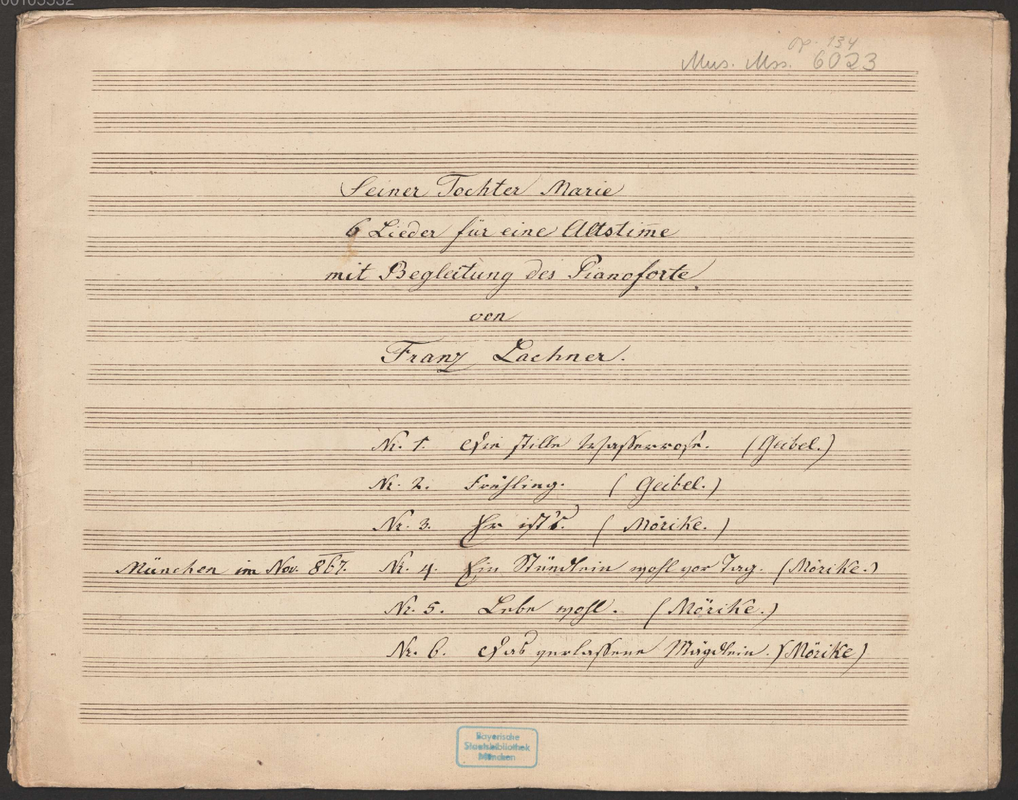 op. 134
Mus. Mss. 6023
Seiner Tochter Marie
6 Lieder für eine Altstim̅e
mit Begleitung des Pianoforte
von
Franz Lachner.
Nr. 1. Die stille Wasserrose. (Geibel.)
Nr. 2. Frühling. (Geibel.)
Nr. 3. Er ist's. (Mörike.)
München im Nov. 867. Nr. 4. Ein Stündlein wohl vor Tag. (Mörike.)
Nr. 5. Lebe wohl. (Mörike.)
Nr. 6. Das verlassene Mägdlein. (Mörike)
Bayerische
Staatsbibliothek
München